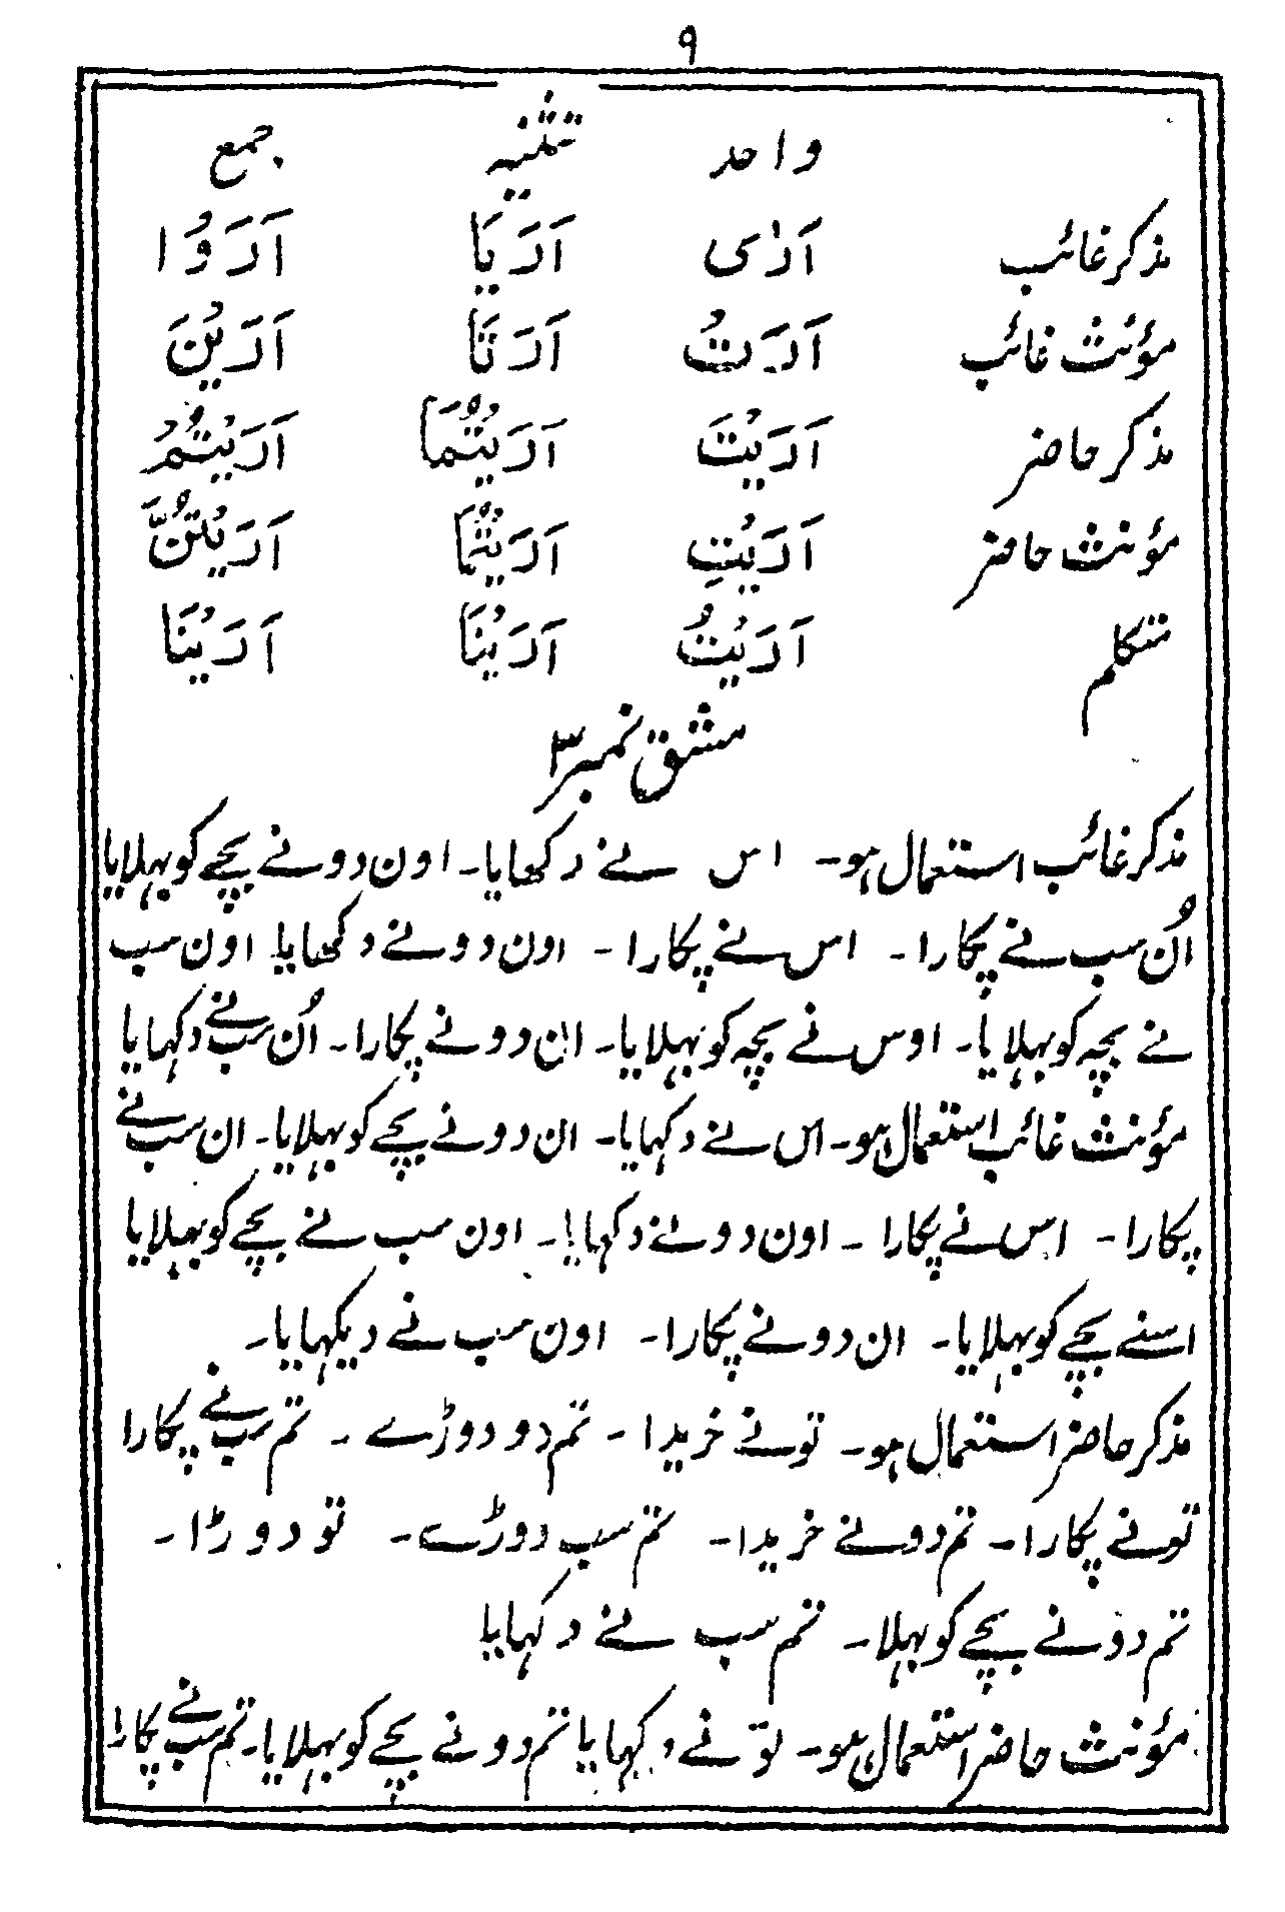 ۹
واحد تثنیہ جمع
مذکر غائب اَرٰی اَرَیَا اَرَوْا
مؤنث غائب اَرَتْ اَرَتَا اَرَیْنَ
مذکر حاضر اَرَیْتَ اَرَیْتُمَا اَرَیْتُمْ
مؤنث حاضر اَرَیْتِ اَرَیْتُمَا اَرَیْتُنَّ
متکلم اَرَیْتُ اَرَیْنَا اَرَیْنَا
مشق نمبر ۳
مذکر غائب استعمال ہو۔ اس نے دکھایا۔ اون دو نے بچے کو بہلایا
اُن سب نے پکارا۔ اس نے پکارا۔ اون دو نے دکھایا اون سب
نے بچہ کو بہلایا۔ اوس نے بچہ کو بہلایا۔ ان دو نے پکارا۔ اُن سب نے دکہایا
مؤنث غائب استعمال ہو۔ اس نے دکہایا۔ ان دو نے بچے کو بہلایا۔ ان سب نے
پکارا۔ اس نے پکارا۔ اون دو نے دکہایا۔ اون سب نے بچے کو بہلایا
اسنے بچے کو بہلایا۔ ان دو نے پکارا۔ اون سب نے دیکہایا۔
مذکر حاضر استعمال ہو۔ تو نے خریدا۔ تم دو دوڑے۔ تم سب نے پکارا
تو نے پکارا۔ تم دو نے خریدا۔ تم سب دوڑے۔ تو دوڑا۔
تم دو نے بچے کو بہلا۔ تم سب نے دکہایا
مؤنث حاضر استعمال ہو۔ تو نے دکہایا تم دو نے بچے کو بہلایا۔ تم سب نے پکارا